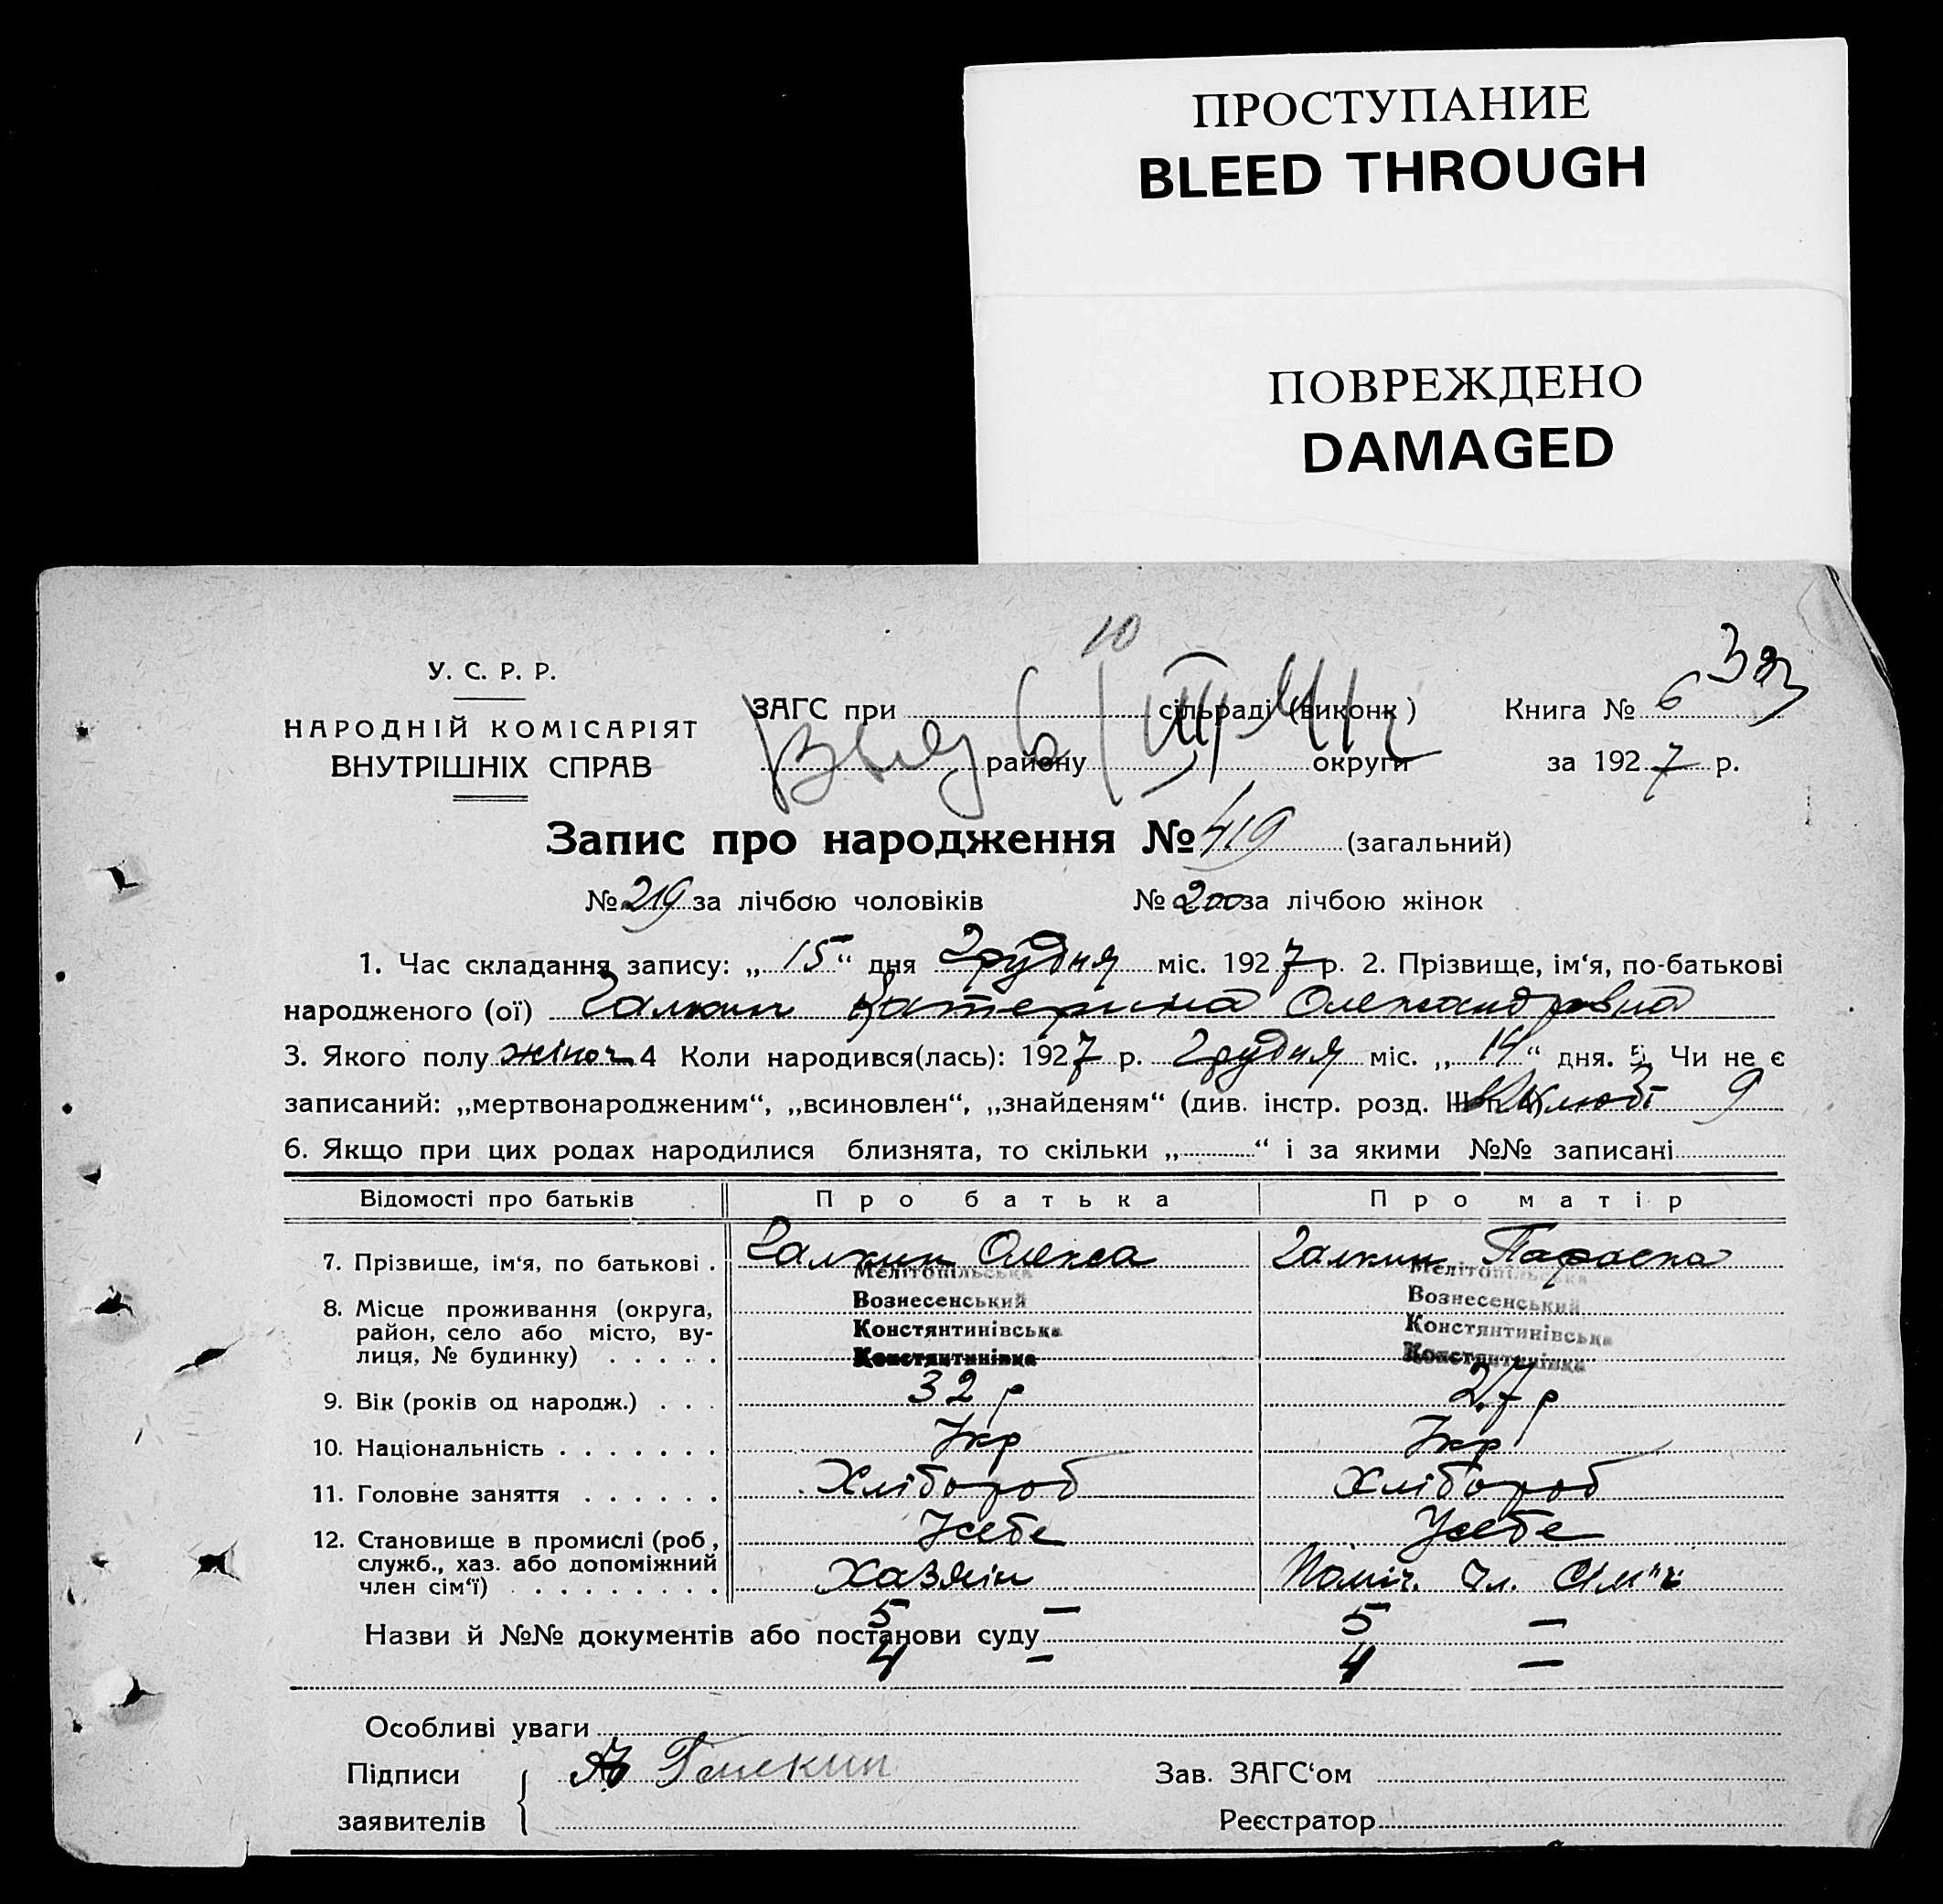 ПРОСТУПАНИЕ
BLEED THROUGH
ПОВРЕЖДЕНО
DAMAGED
10
У. С. Р. Р.
НАРОДНІЙ КОМІСАРІЯТ
ВНУТРІШНІХ СПРАВ
ЗАГС при сільраді (виконк )
району округи
Книга № 6
за 1927 р.
Запис про народження № 419 (загальний)
№ 219 за лічбою чоловіків № 200 за лічбою жінок
1. Час складання запису: „ 15 “ дня Грудня міс. 1927 р. 2. Прізвище, ім‘я, по-батькові
народженого (ої) Галкин Катерина Олександровна
3. Якого полу жіноч 4 Коли народився(лась): 1927 р. Грудня міс. „ 14 “ дня. 5. Чи не є
записаний: „мертвонародженим“, „всиновлен“, „знайденям“ (див. інстр. розд. III п. 9
6. Якщо при цих родах народилися близнята, то скільки „ “ і за якими №№ записані
Відомості про батьків Про батька Про матір
7. Прізвище, ім‘я, по батькові . Галкин Олекса Галкин Параска
Мелітопільська Мелітопільська
8. Місце проживання (округа, Вознесенський Вознесенський
район, село або місто, ву- Констянтинівська Констянтинівська
лиця, № будинку) . . . . . Констянтинівка Констянтинівка
9. Вік (років од народж.) . . . 32 р 27 р
10. Національність . . . . . . . Укр Укр
11. Головне заняття . . . . . . Хлібороб Хлібороб
12. Становище в промислі (роб, У себе У себе
служб., хаз. або допоміжний
член сім‘ї) . . . . . . . . . Хазяін Поміч. чл. сім"ї
5 — 5 —
Назви й №№ документів або постанови суду
4 — 4 —
Особливі уваги
Підписи Галкин Зав. ЗАГС‘ом
заявителів Реєстратор